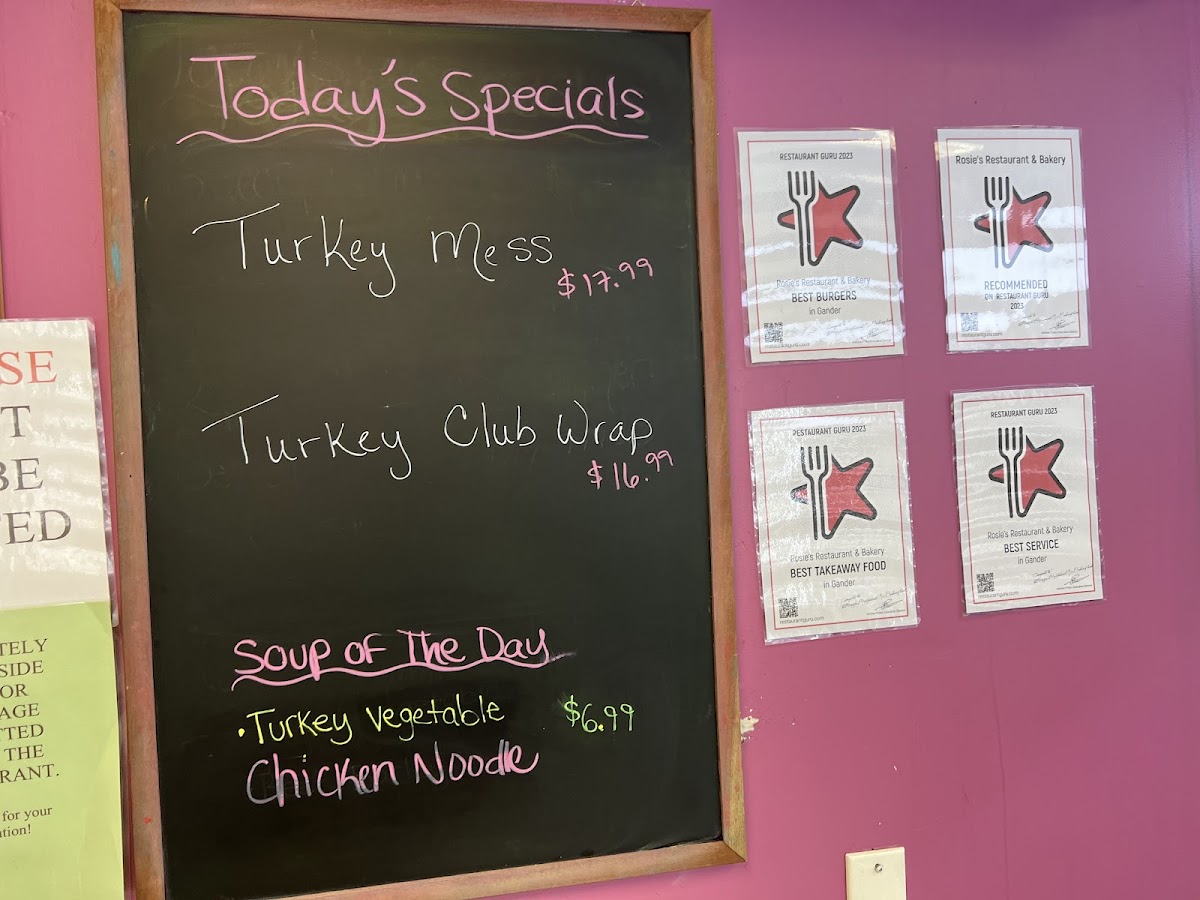 Today's Specials
Turkey Mess
$17.99
Turkey Club Wrap
$16.99
Soup of The Day
• Turkey Vegetable $6.99
Chicken Noodle
RESTAURANT GURU 2023
Rosie's Restaurant & Bakery
BEST BURGERS
in Gander
restaurantguru.com
Rosie's Restaurant & Bakery
RECOMMENDED
ON RESTAURANT GURU
2023
RESTAURANT GURU 2023
Rosie's Restaurant & Bakery
BEST TAKEAWAY FOOD
in Gander
restaurantguru.com
RESTAURANT GURU 2023
Rosie's Restaurant & Bakery
BEST SERVICE
in Gander
restaurantguru.com
SE
T
BE
TED
TELY
SIDE
OR
AGE
TTED
THE
RANT.
for your
ation!